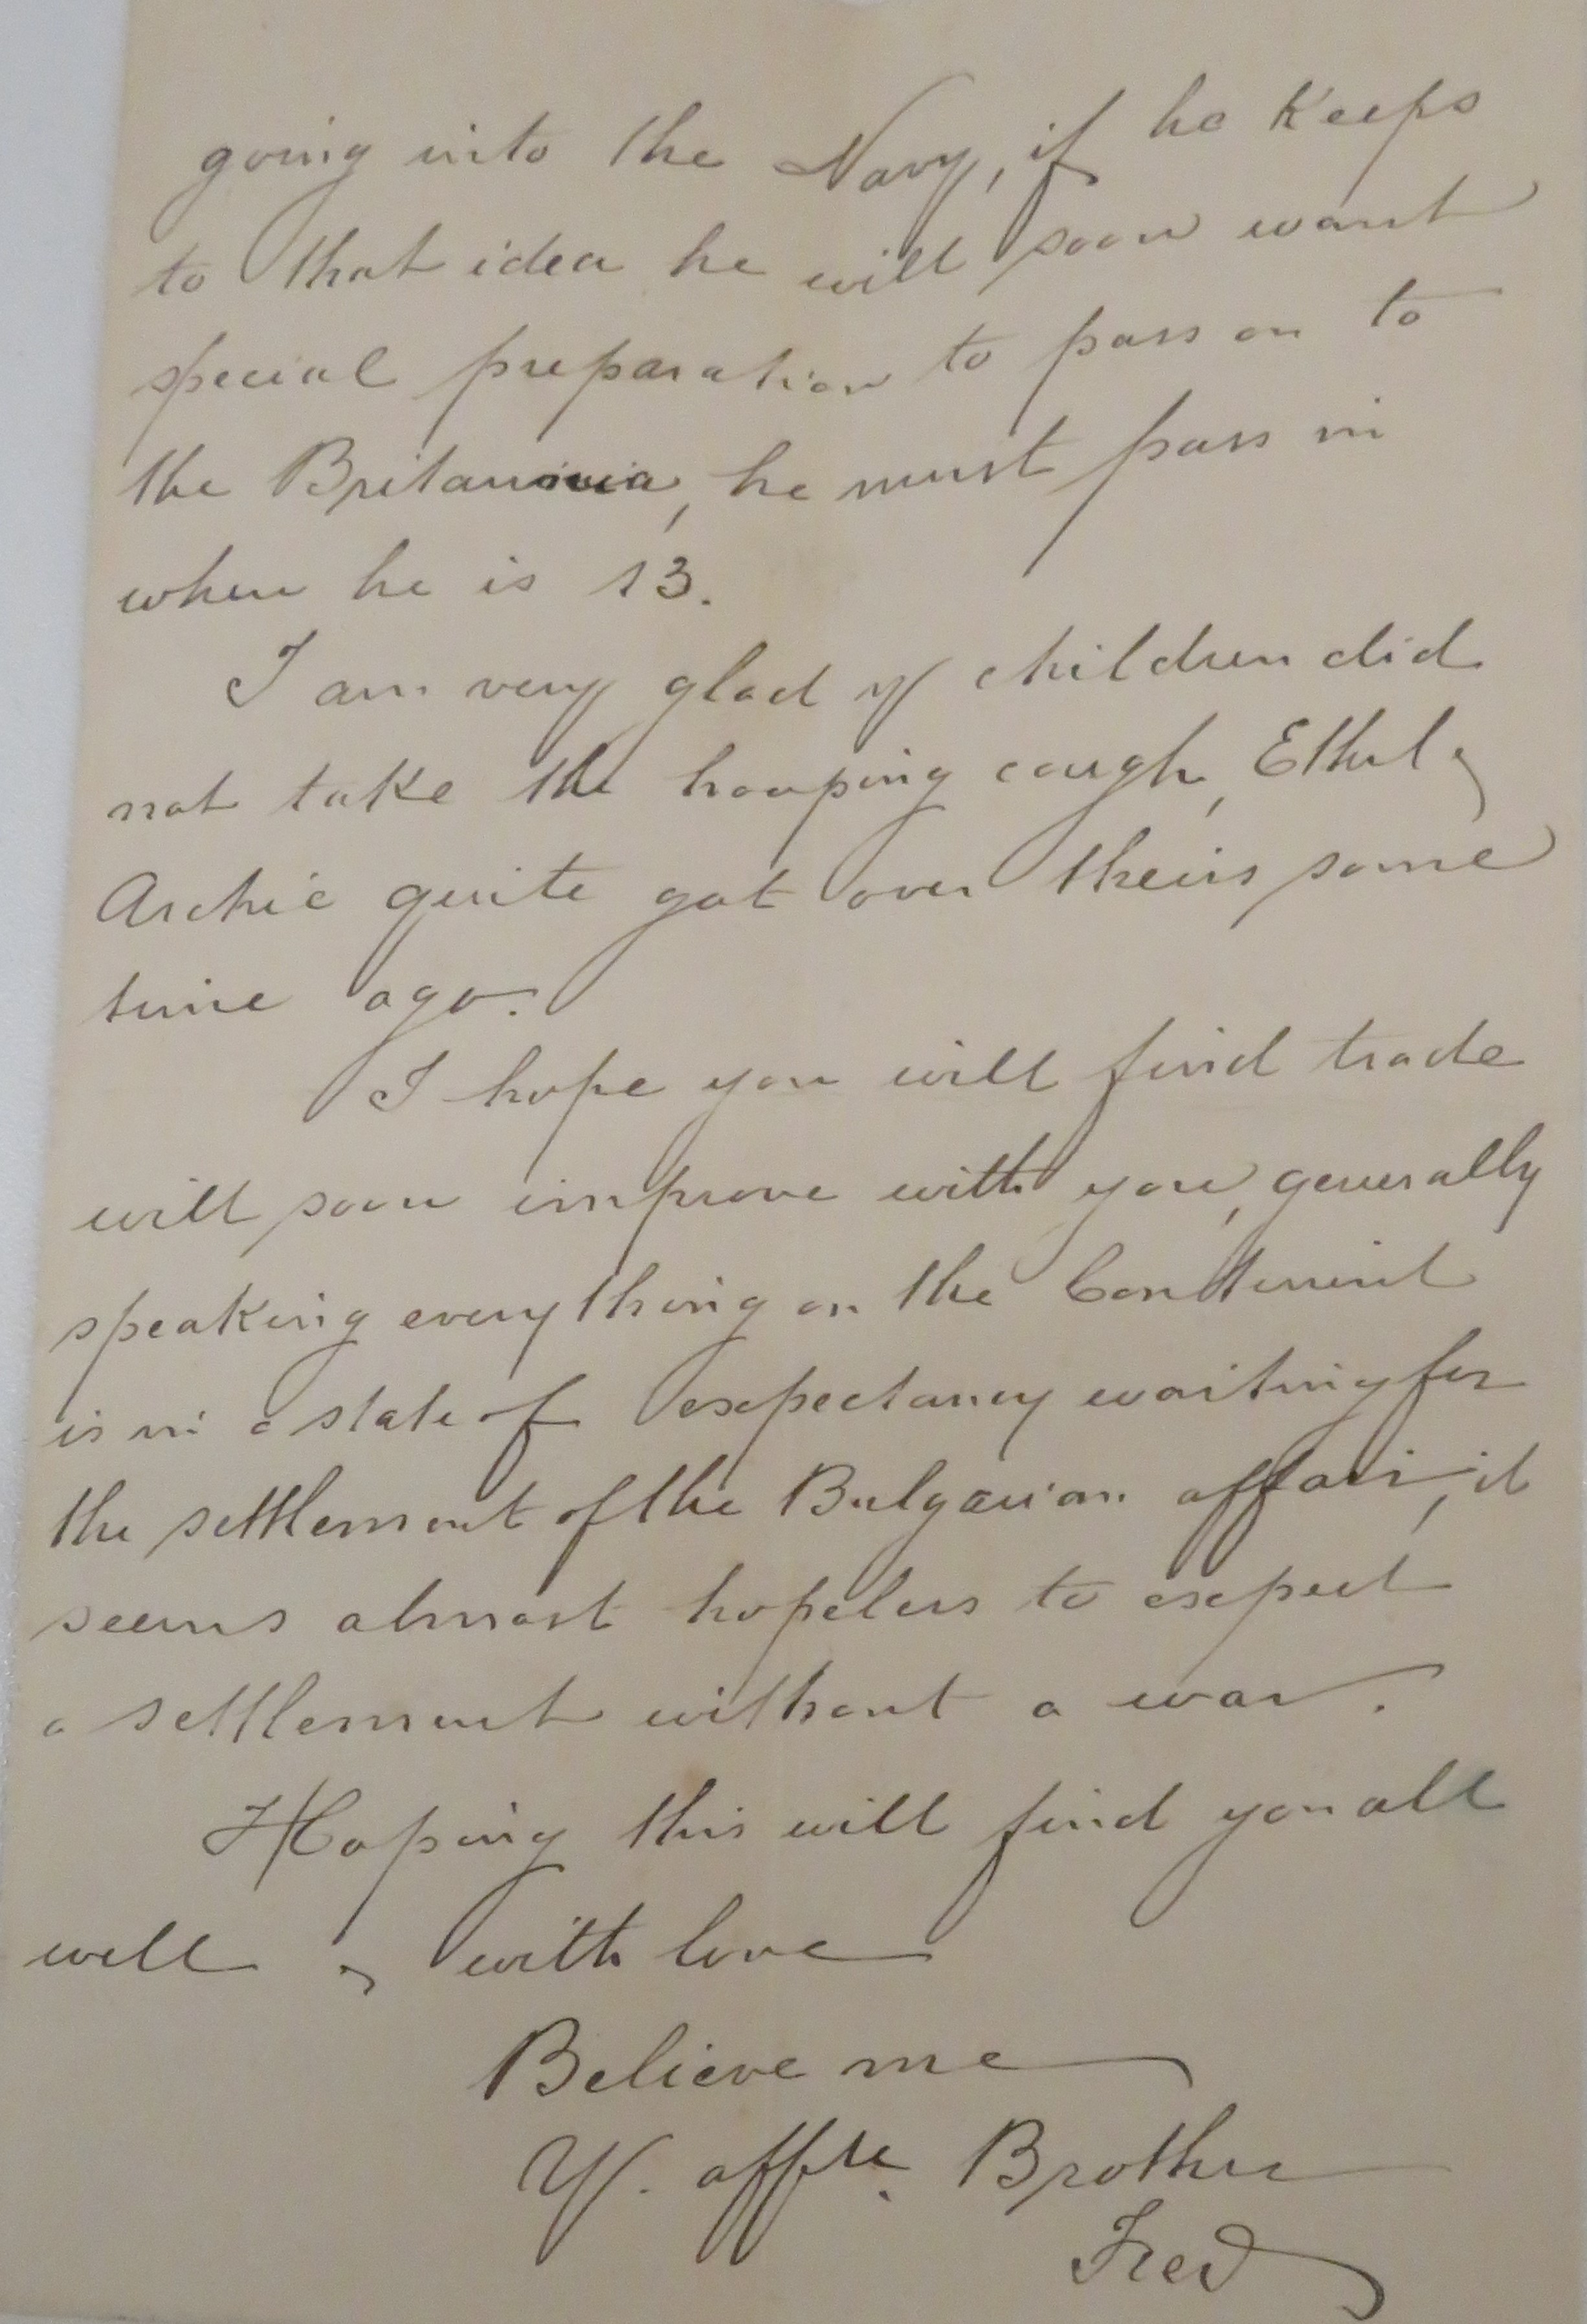 going into the Navy, if he keeps
to that idea he will soon want
special preparation to pass on to
the Britannia, he must pass in
when he is 13.
I am very glad yr children did
not take the hooping cough, Ethel &
Archie quite got over theirs some
time ago.
I hope you will find trade
will soon improve with you, generally
speaking everything on the Continent
is in a state of expectancy waiting for
the settlement of the Bulgarian affair, it
seems almost hopeless to expect
a settlement without a war.
Hoping this will find you all
well & with love
Believe me
Yr. affte. Brother
Fred